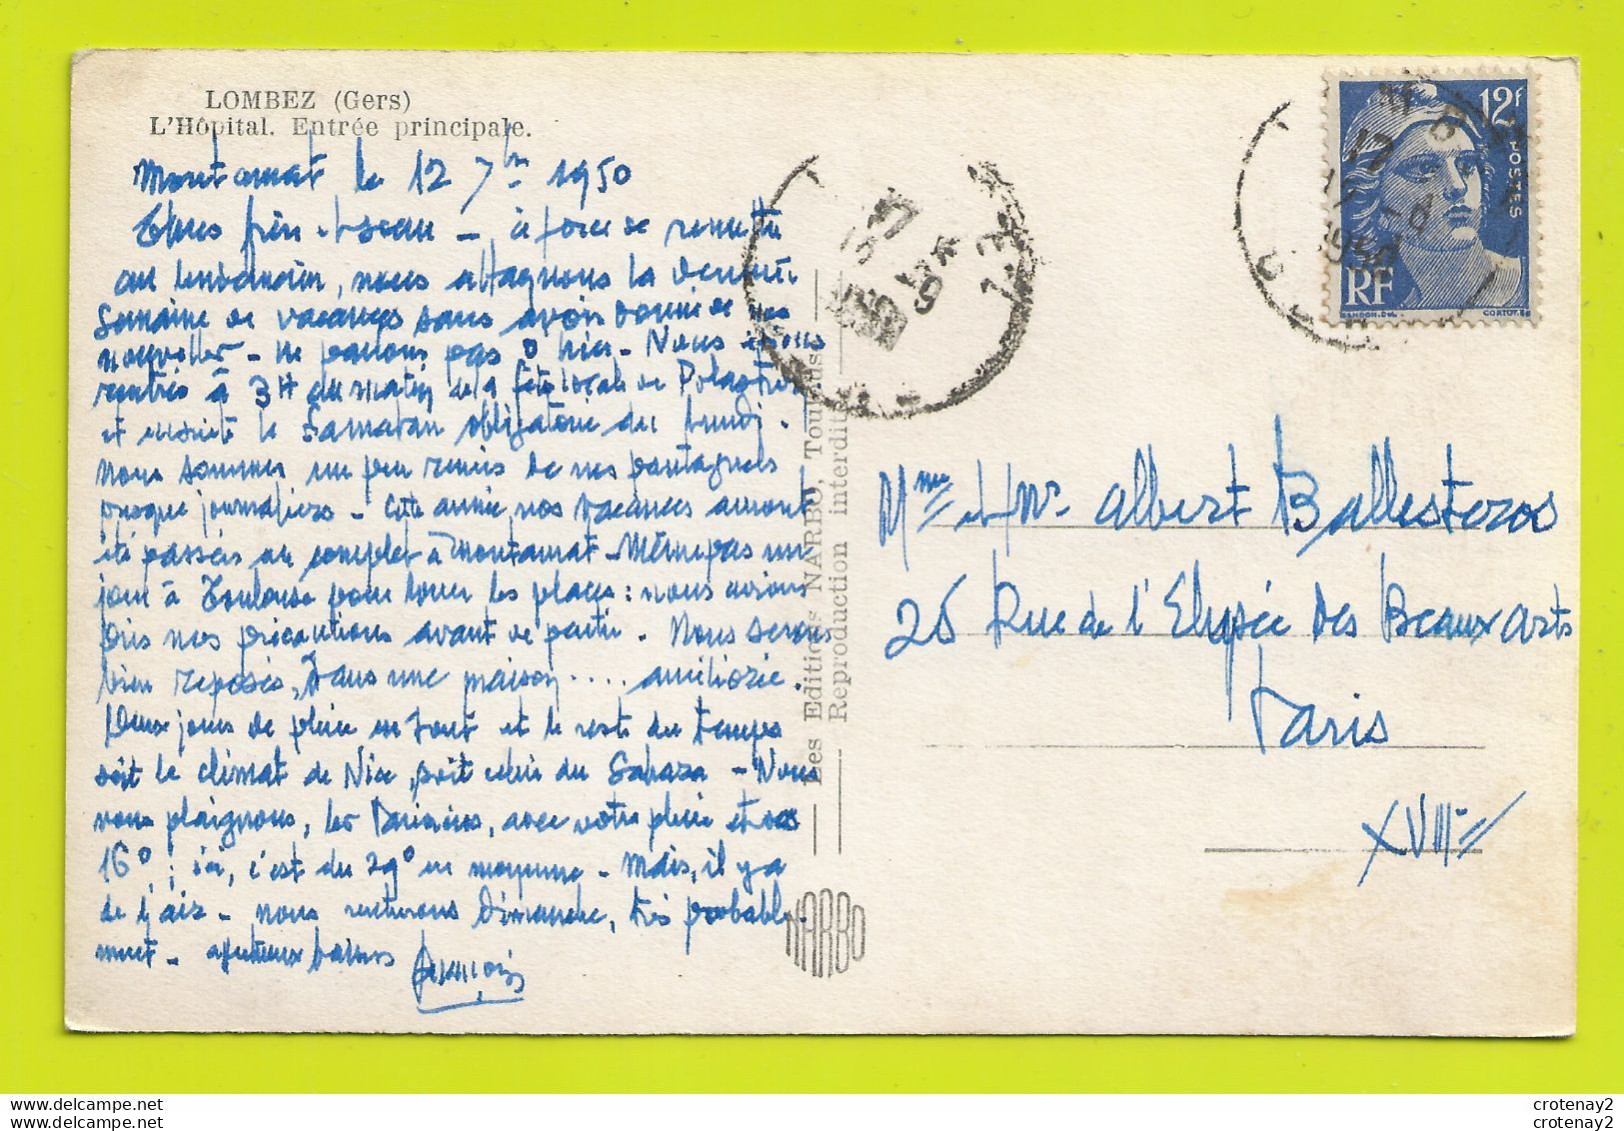 LOMBEZ (Gers)
L'Hôpital. Entrée principale.
Montamat le 12 7bre 1950
à force de remettre
au lendemain, nous attagnons la dernière
semaine de vacances sans avoir donné de nos
nouvelles - ne parlons pas d'hier - Nous étions
rentrés à 3H du matin de la fête locale de Polastron
et ensuite le Samatan obligatoire du Lundi.
nous sommes un peu remis de nos pantagruels
presque journaliers - Cette année, nos vacances auront
été passées au complet à Montamat - Même pas un
jour à Toulouse pour louer les places : nous avions
pris nos précautions avant de partir. Nous serons
bien reposés, dans une maison .... améliorée.
Deux jours de pluie en tout et le reste du temps
soit le climat de Nice, soit celui du Sahara - Nous
vous plaignons, les Parisiens, avec votre pluie et vos
16° ; ici, c'est du 29° en moyenne - Mais, il y a
de l'air - nous rentrerons Dimanche, très probable-
ment - affectueux baisers
François
Les Editions NARBO, Toulouse
Reproduction interdite
NARBO
12f
POSTES
RF
GANDON.Del.
CORTOT.Sc
1950
Mme et Mr Albert Ballesteros
26 Rue de l'Elysée des Beaux arts
Paris
XVIIIe
delcampe.net
delcampe.net
crotenay2
crotenay2